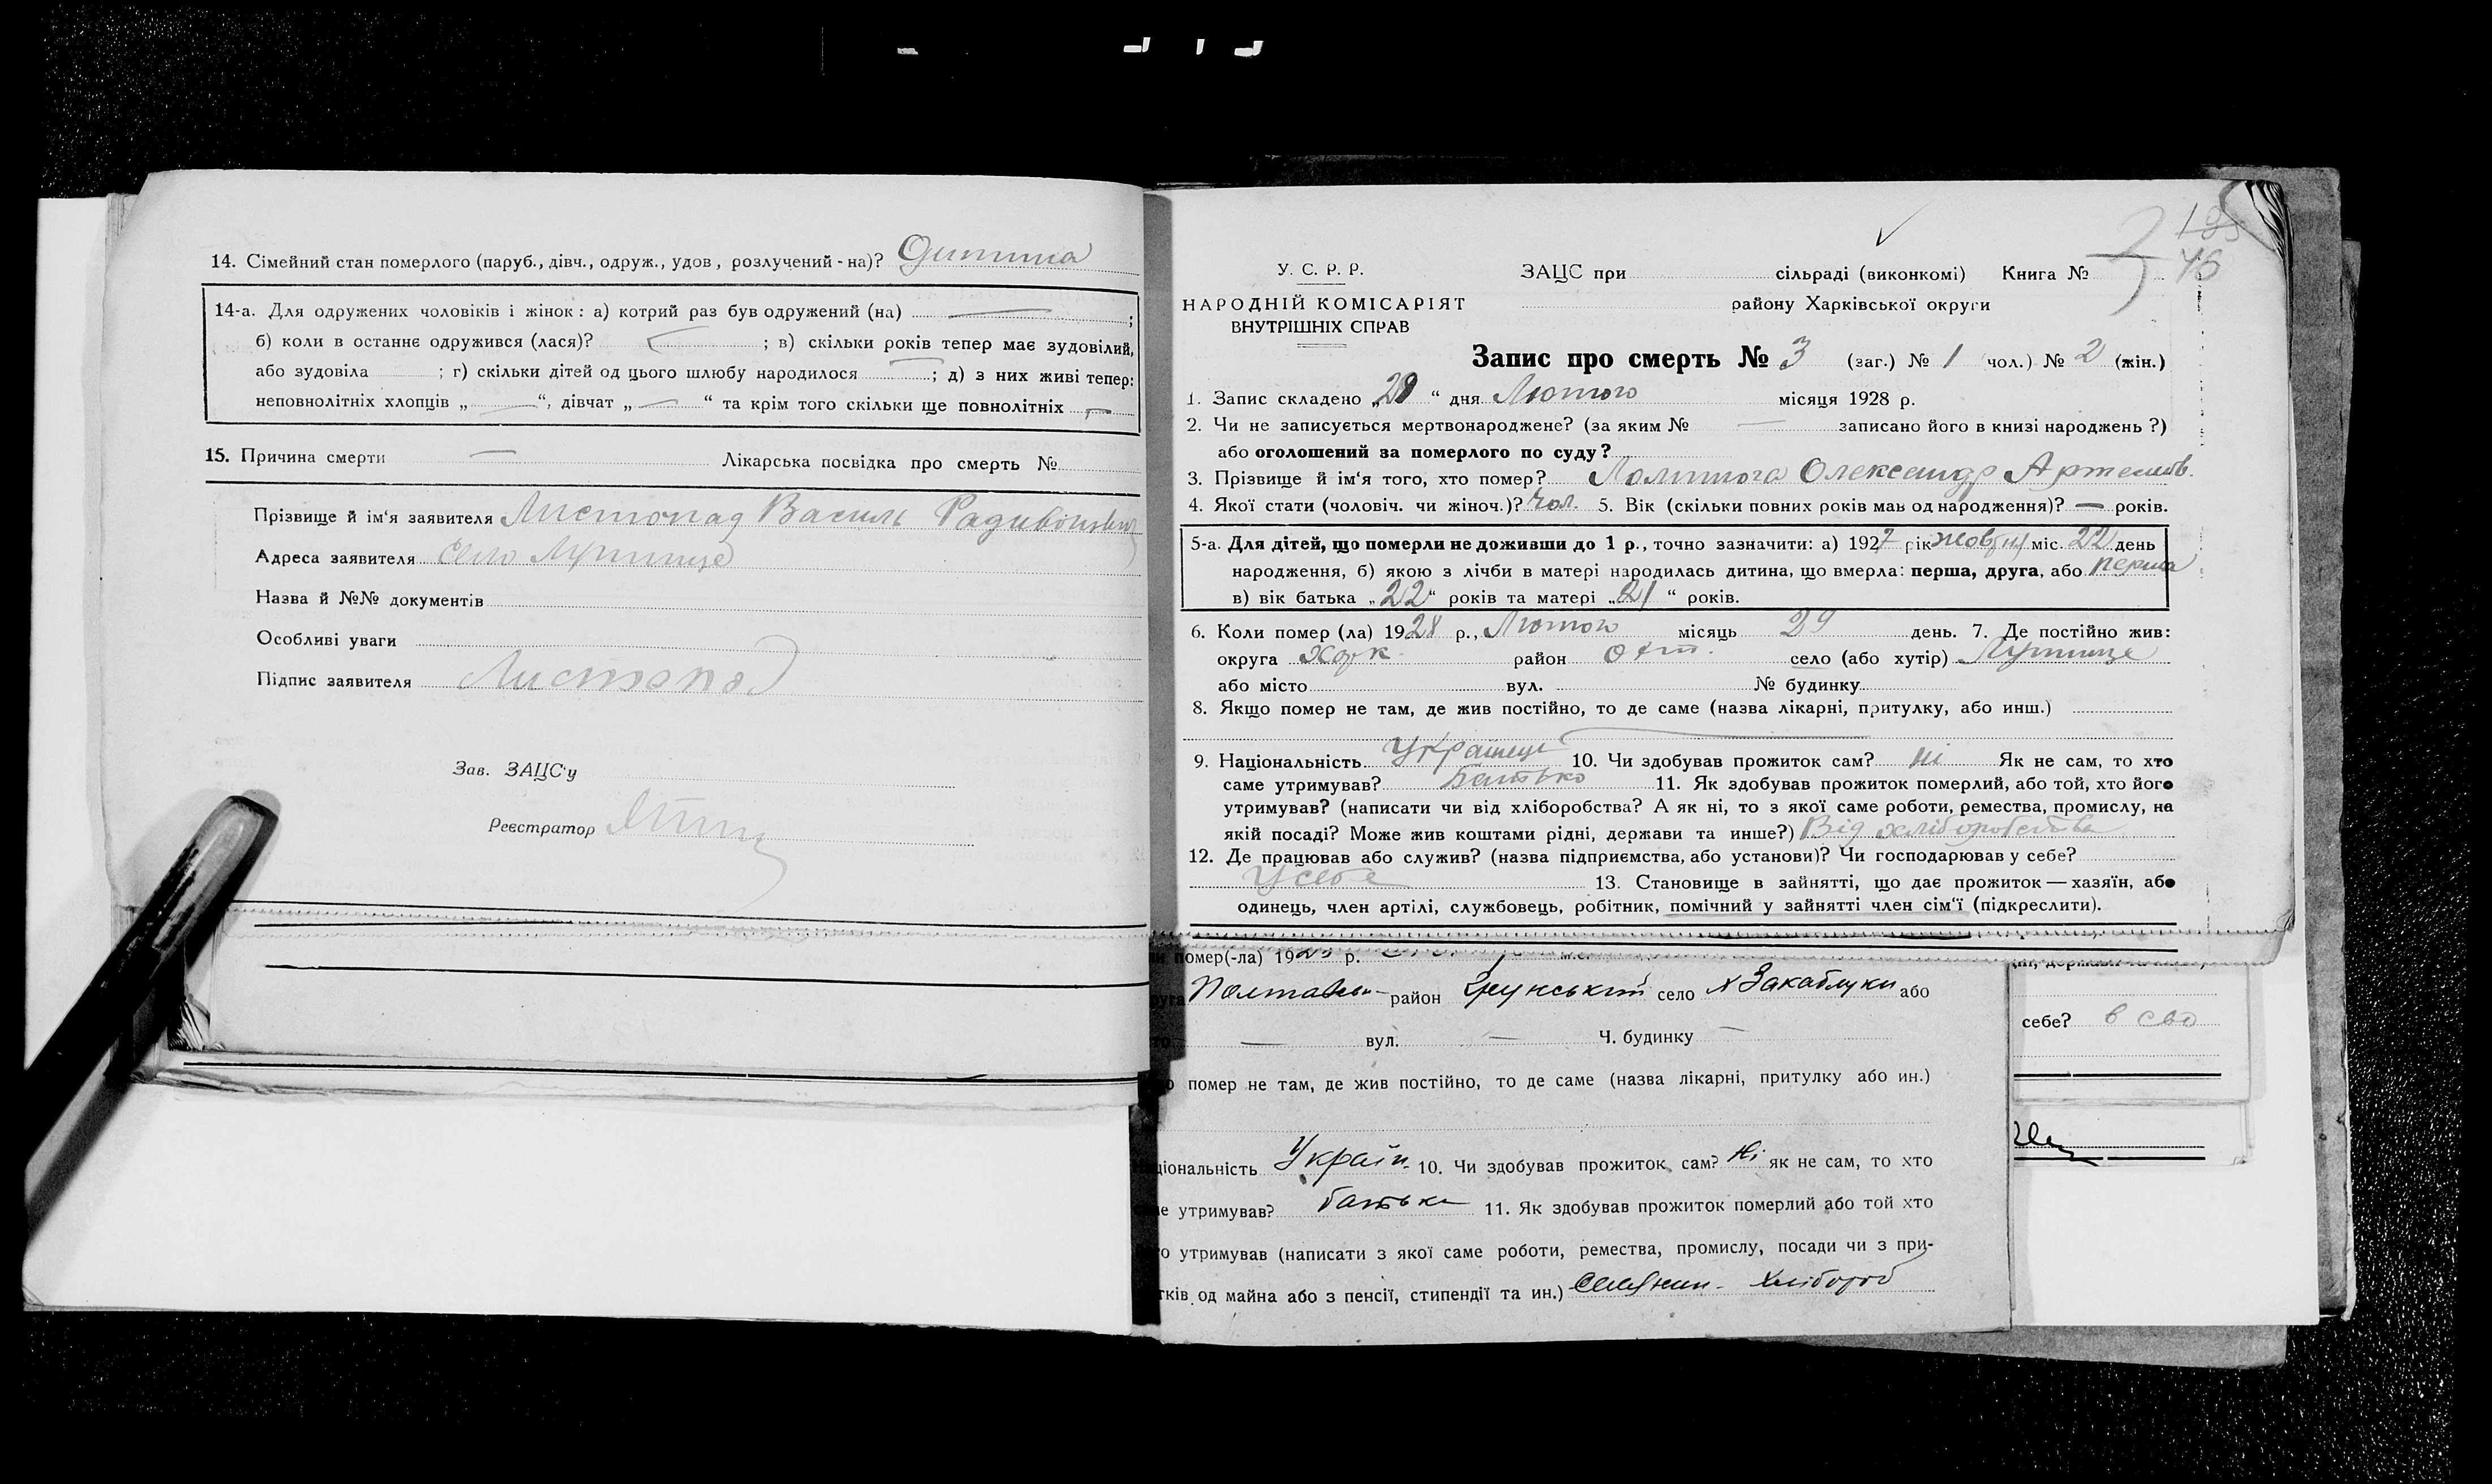 14. Сімейний стан померлого (паруб., дівч., одруж., удов, розлучений - на)? Дитина
14-а. Для одружених чоловіків і жінок: а) котрий раз був одружений (на) —;
б) коли в останнє одружився (лася)? ; в) скільки років тепер має зудовілий,
або зудовіла ; г) скільки дітей од цього шлюбу народилося ; д) з них живі тепер:
неповнолітніх хлопців „ — “, дівчат „ — “ та крім того скільки ще повнолітніх —
15. Причина смерти — Лікарська посвідка про смерть №
Прізвище й ім‘я заявителя Листопад Василь Радивонович
Адреса заявителя Село
Назва й №№ документів
Особливі уваги
Підпис заявителя Листопад
Зав. ЗАЦС‘у
Реєстратор
3 185
46
У. С. Р. Р. ЗАЦС при сільраді (виконкомі) Книга №
НАРОДНІЙ КОМІСАРІЯТ району Харківської округи
ВНУТРІШНІХ СПРАВ
Запис про смерть № 3 (заг.) № 1 чол.) № 2 (жін.)
1. Запис складено „29“ дня Лютого місяця 1928 р.
2. Чи не записується мертвонароджене? (за яким № — записано його в книзі народжень ?)
або оголошений за померлого по суду?
3. Прізвище й ім‘я того, хто помер? Олександр Артемов.
4. Якої стати (чоловіч. чи жіноч.)? Чол. 5. Вік (скільки повних років мав од народження)? — років.
5-а. Для дітей, що померли не доживши до 1 р., точно зазначити: а) 1927 рік жовтня міс. 22 день
народження, б) якою з лічби в матері народилась дитина, що вмерла: перша, друга, або перша
в) вік батька „22“ років та матері „21“ років.
6. Коли помер (ла) 1928 р., Лютого місяць 29 день. 7. Де постійно жив:
округа Харк район Охт. село (або хутір)
або місто вул. № будинку
8. Якщо помер не там, де жив постійно, то де саме (назва лікарні, притулку, або инш.)
9. Національність Українець 10. Чи здобував прожиток сам? ні Як не сам, то хто
саме утримував? Батько 11. Як здобував прожиток померлий, або той, хто його
утримував? (написати чи від хліборобства? А як ні, то з якої саме роботи, ремества, промислу, на
якій посаді? Може жив коштами рідні, держави та инше?) Від хліборобства
12. Де працював або служив? (назва підприємства, або установи)? Чи господарював у себе?
У себе 13. Становище в зайнятті, що дає прожиток — хазяїн, або
одинець, член артілі, службовець, робітник, помічний у зайнятті член сім‘ї (підкреслити).
помер(-ла) 19 р.
Полтавськ- район Грунський село х Закаблуки або
— вул. — Ч. будинку —
помер не там, де жив постійно, то де саме (назва лікарні, притулку або ин.)
ціональність Україн. 10. Чи здобував прожиток сам? Ні як не сам, то хто
е утримував? батько 11. Як здобував прожиток померлий або той хто
о утримував (написати з якої саме роботи, ремества, промислу, посади чи з при-
тків од майна або з пенсії, стипендії та ин.) Селянин- Хлібороб
себе? в сво